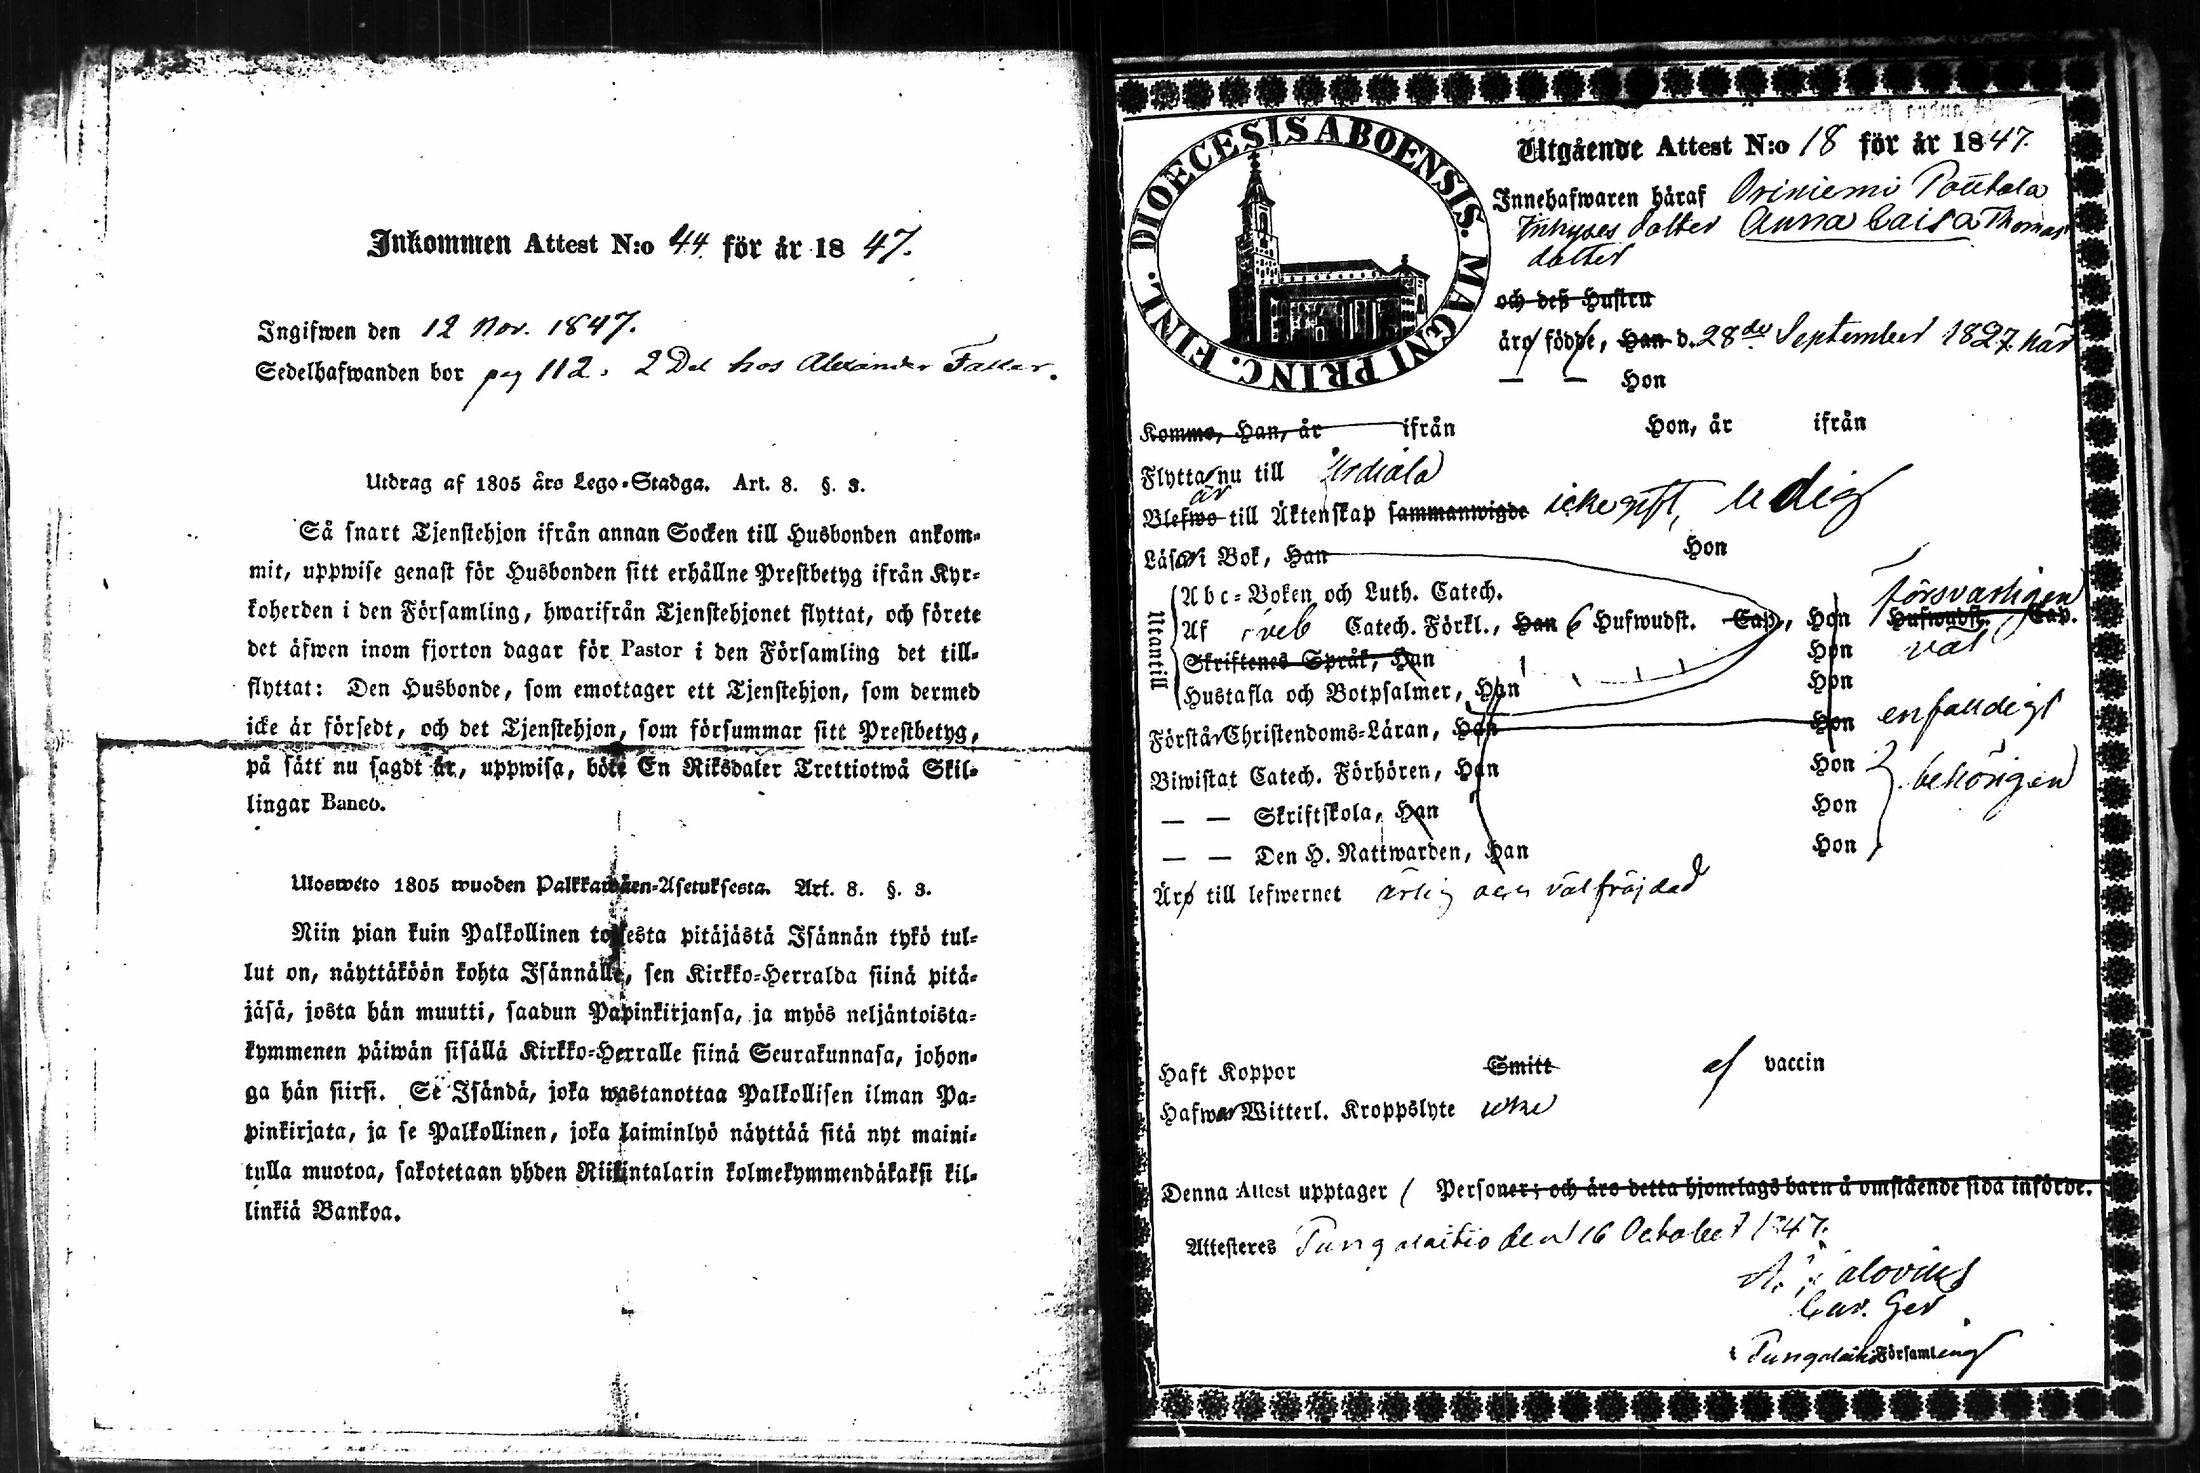 Inkommen Attest N:o 44 för år 1847.
Ingifwen den 12 Nov. 1847.
Sedelhafwanden bor pag 112. 2 Del hos Alexander
Utdrag af 1805 års Lego-Stadga. Art. 8. §. 3.
Så snart Tjenstehjon ifrån annan Socken till Husbonden ankom-
mit, uppwise genast för Husbonden sitt erhållne Prestbetyg ifrån Kyr-
koherden i den Församling, hwarifrån Tjenstehjonet flyttat, och förete
det äfwen inom fjorton dagar för Pastor i den Församling det till-
flyttat: Den Husbonde, som emottager ett Tjenstehjon, som dermed
icke är försedt, och det Tjenstehjon, som försummar sitt Prestbetyg,
på sätt nu sagdt är, uppwisa, böte En Riksdaler Trettiotwå Skil-
lingar Banco.
Uloswéto 1805 wuoden Palkkawäen-Asetuksesta. Art. 8. §. 3.
Niin pian kuin Palkollinen toisesta pitäjästä Isännän tykö tul-
lut on, näyttäköön kohta Isännälle, sen Kirkko-Herralda siinä pitä-
jäsä, josta hän muutti, saadun Papinkirjansa, ja myös neljäntoista-
kymmenen päiwän sisällä Kirkko-Herralle siinä Seurakunnasa, johon-
ga hän siirsi. Se Isändä, joka wastanottaa Palkollisen ilman Pa-
pinkirjata, ja se Palkollinen, joka laiminlyö näyttää sitä nyt maini-
tulla muotoa, sakotetaan yhden Riikintalarin kolmekymmendäkaksi kil-
linkiä Bankoa.
DIOECESIS ABOENSIS. MAGNI PRINC. FINL.
Utgående Attest N:o 18 för år 1847.
Innehafwaren häraf Oriniemi
Inhyses dotter Anna Caisa Thomas
dotter
och deß Hustru
äro födde, Han d. 28de September 1827. här
— — Hon
Komma, Han, år ifrån Hon, år ifrån
Flyttar nu till Urdiala
är
Blefwo till Äktenskap sammanwigde icke gift, ledig
Läsa i Bok, Han Hon
försvarligen
Utantill
Abc-Boken och Luth. Catech.
Af Sveb Catech. Förkl., Han 6 Hufwudst. Cap., Hon Hufwudst. Cap.
Skriftenes Språk, Han Hon väl
Hustafla och Botpsalmer, Han Hon
Förstår Christendoms-Läran, Han Hon enfaldigt
Biwistat Catech. Förhören, Han Hon behörigen
— — Skriftskola, Han Hon
— — Den H. Nattwarden, Han Hon
Äro till lefwernet ärlig och välfräjdad
Haft Koppor Smitt af vaccin
Hafwer Witterl. Kroppslyte icke
Denna Attest upptager 1 Personer; och äro detta hjonelags barn å omstående sida införde.
Attesteres Pungalaitio den 16 October 1847.
Cur. Ger
i Pungalaitio Församling